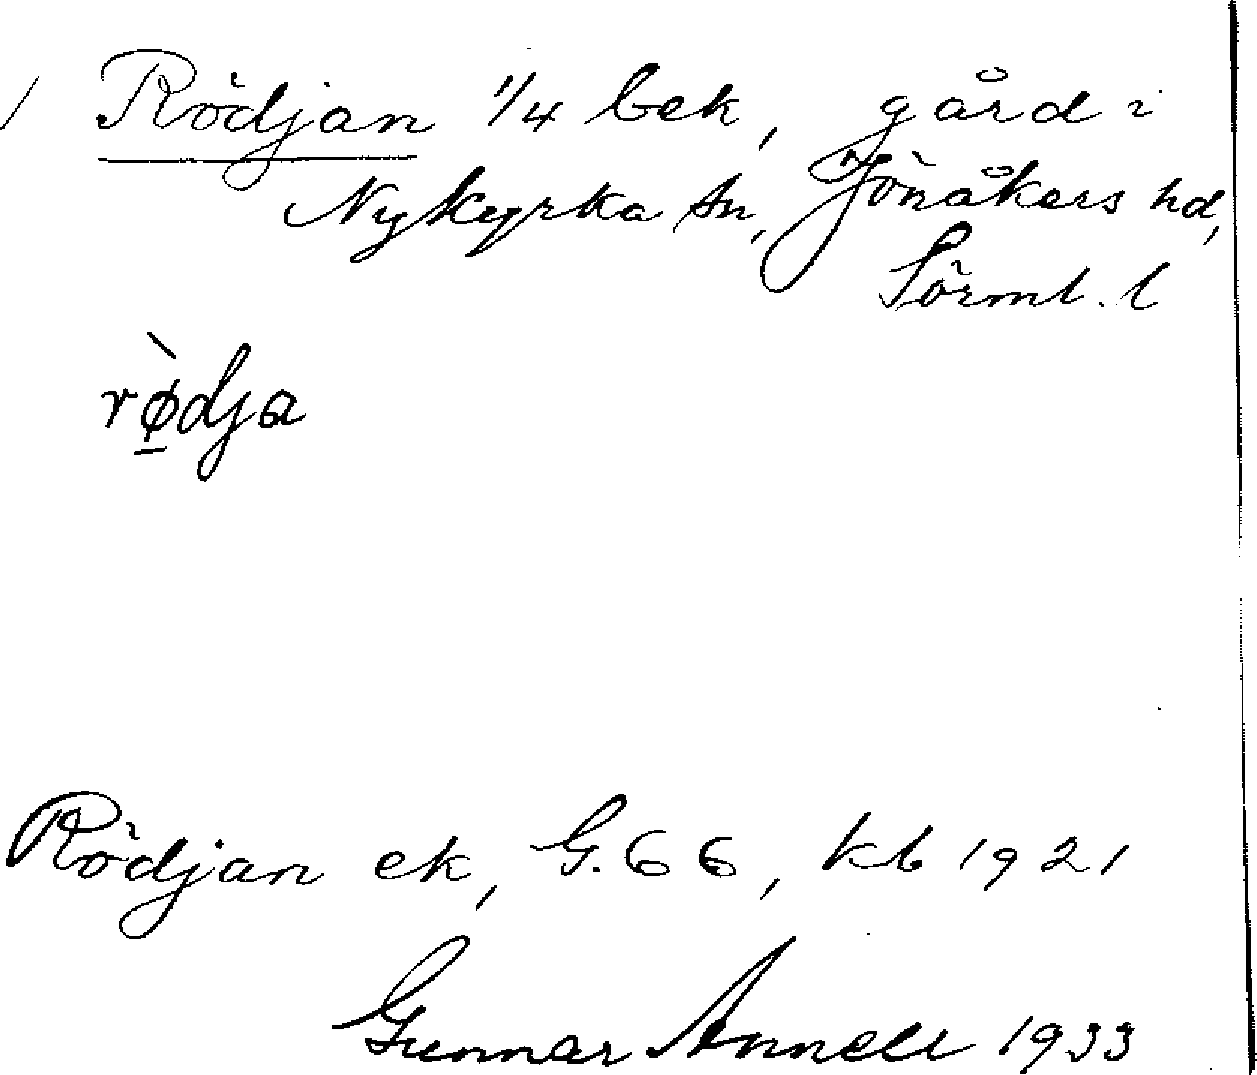 Rödjan 1/4 bek, gård i
Nykyrka sn, Jönåkers hd,
Sörml. l
rø̱̀dja
Rödjan ek, G. 66, kb 1921
Gunnar Annell 1933